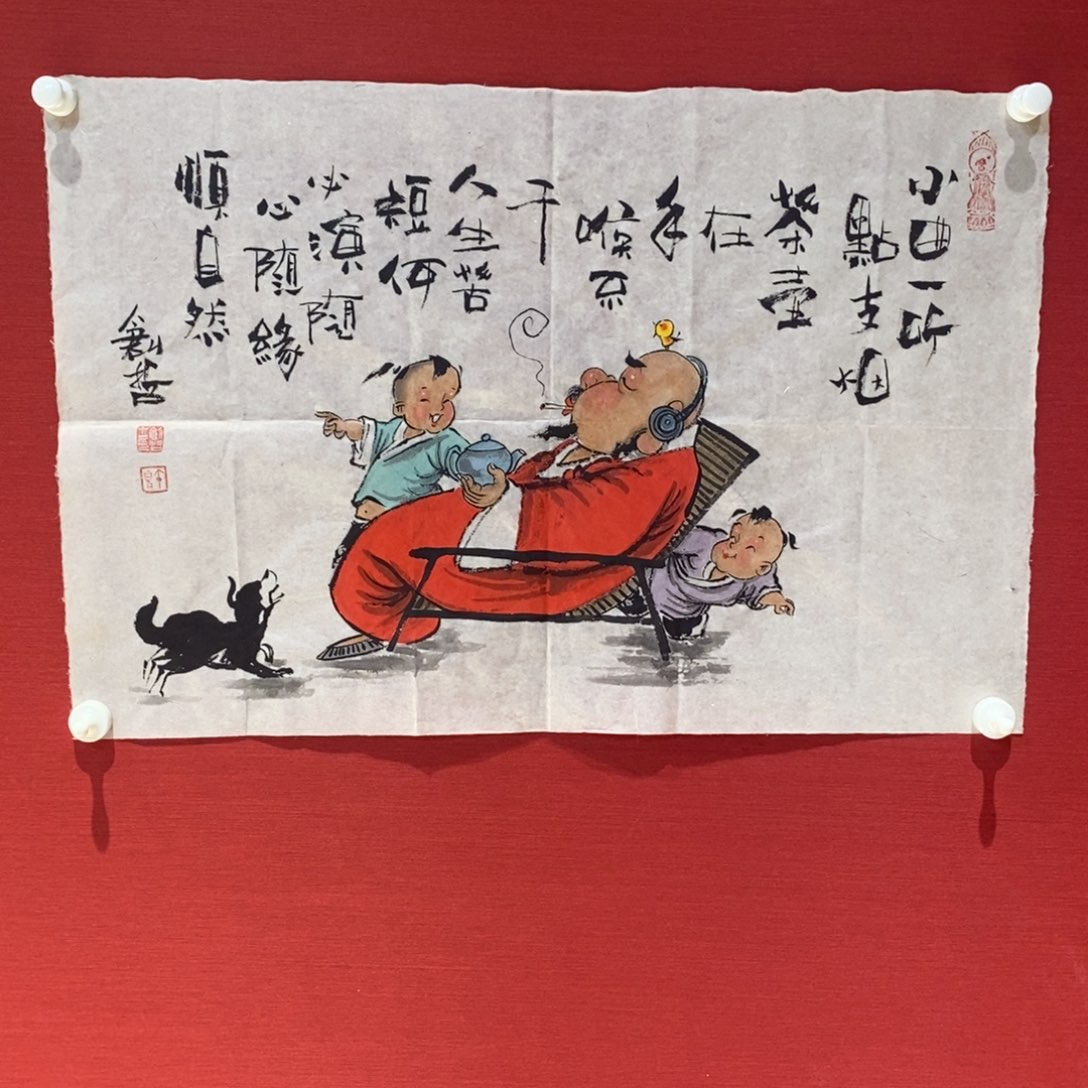 小曲一听
點支烟
茶壺
在
手
喉不
干
人生苦
短何
必演随
心随緣
順自然